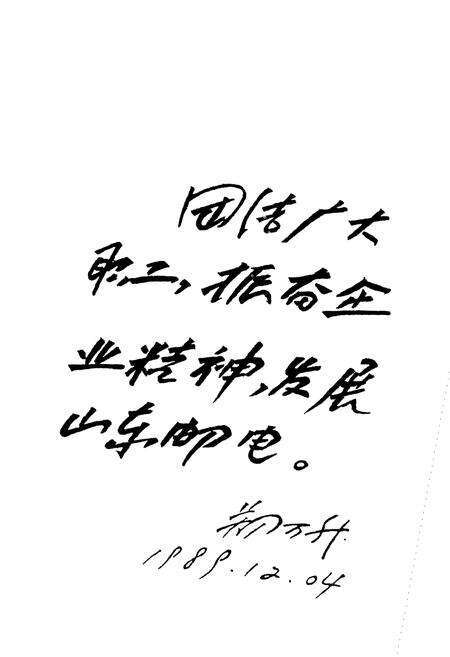 团结广大
职工,振奋企
业精神,发展
山东邮电。
万升
1989.12.04